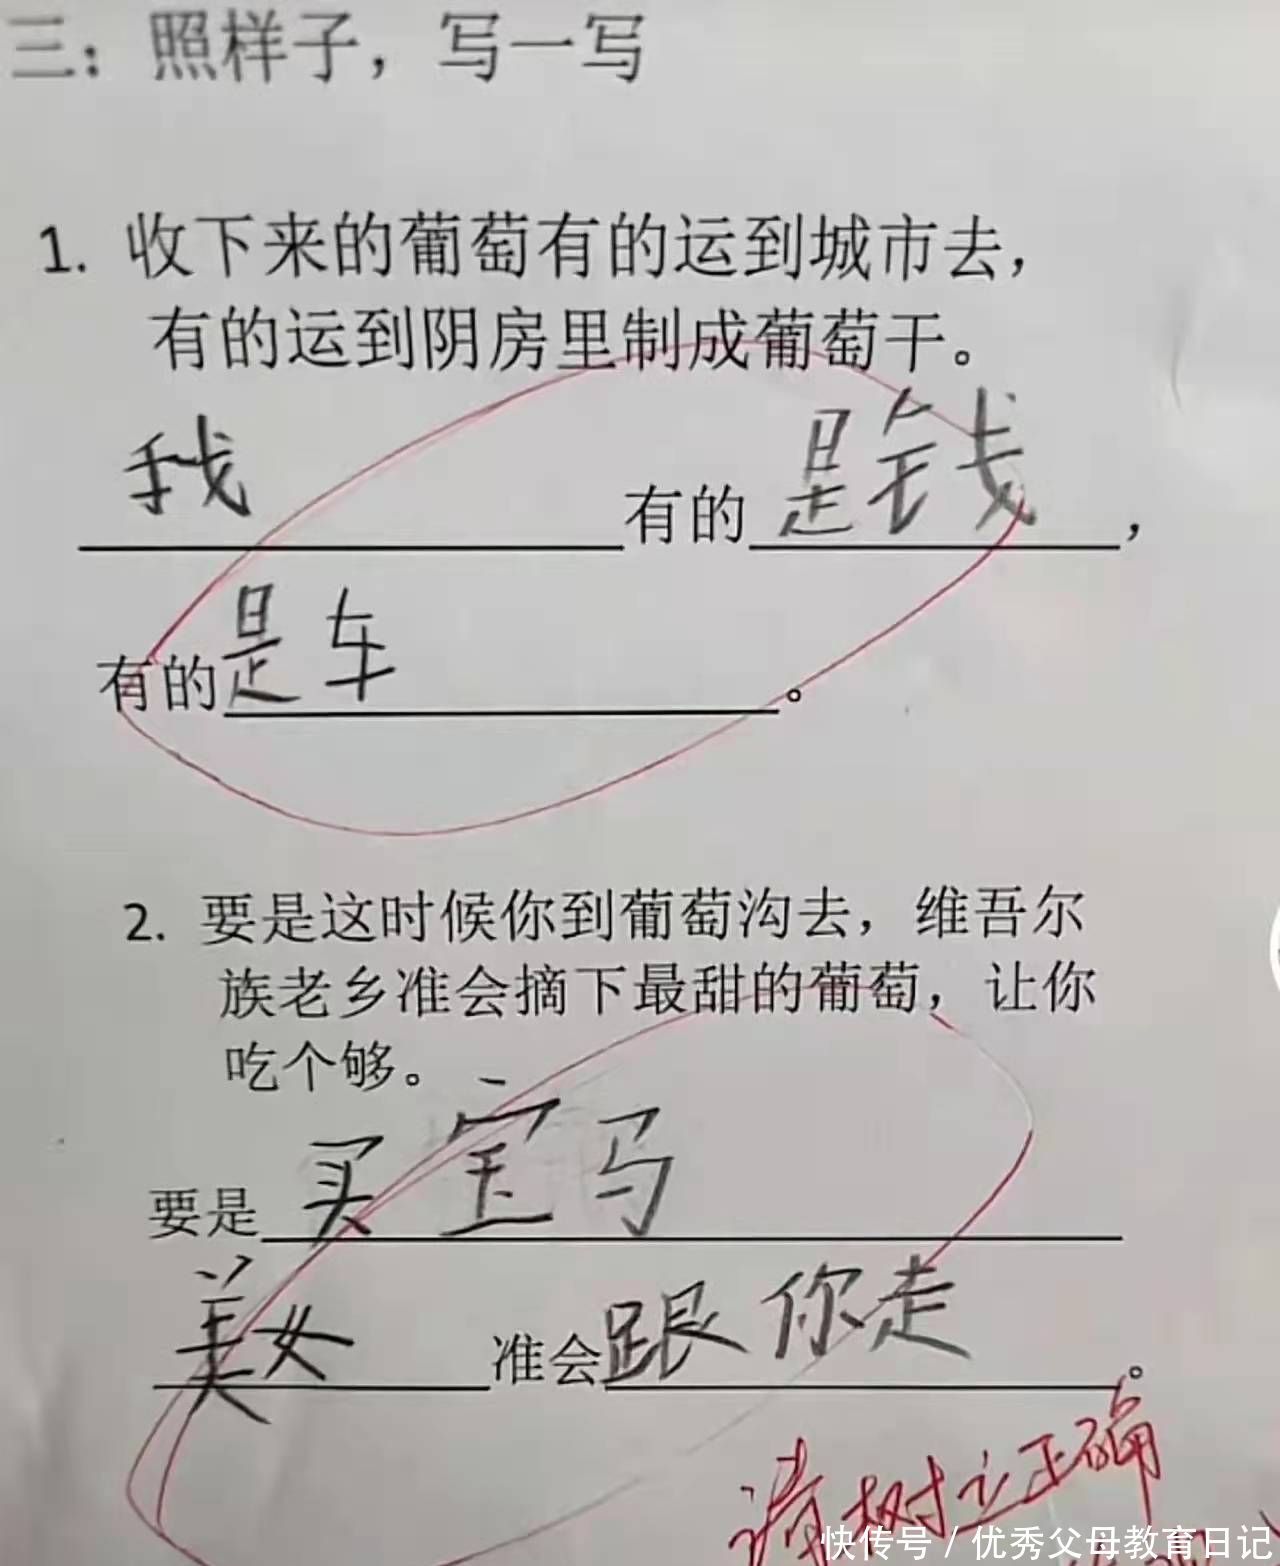 三：照样子，写一写
1. 收下来的葡萄有的运到城市去，
有的运到阴房里制成葡萄干。
我有的是钱，
有的是车。
2. 要是这时候你到葡萄沟去，维吾尔
族老乡准会摘下最甜的葡萄，让你
吃个够。
要是买宝马
美女准会跟你走。
请树立正确
快传号/优秀父母教育日记